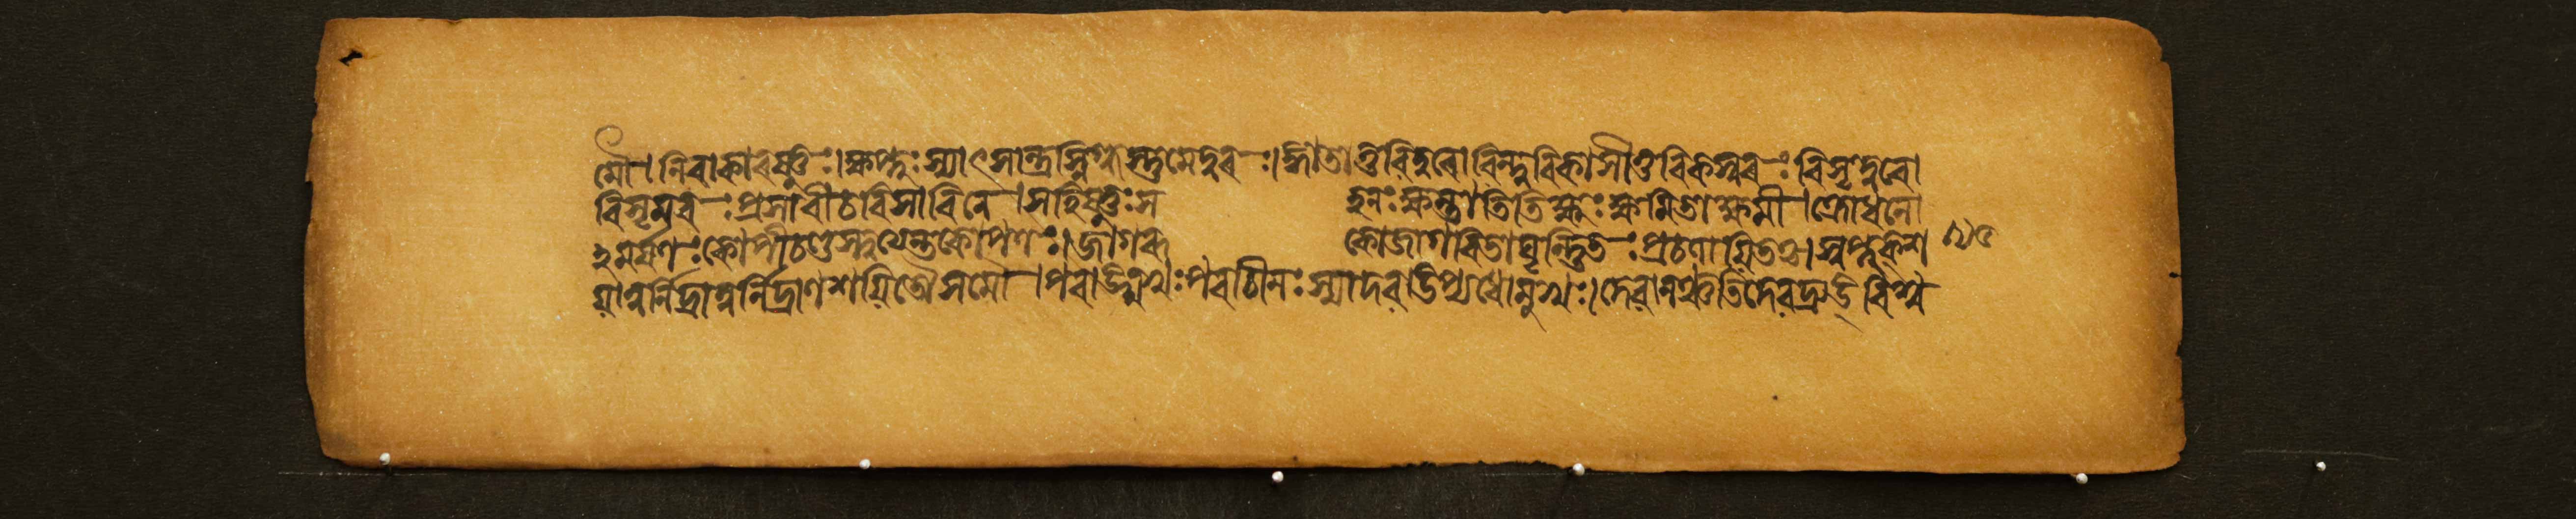 মৌ।নিৰাকৰিষ্ণুঃ।ক্ষিপ্নুঃস্যাৎসান্দ্রস্নিগ্ধস্তুমেদুৰঃ।জ্ঞাতাতুবিদুৰোবিন্দুবিকাসীতুবিকস্বৰঃবিসৃত্বৰো
বিসৃমৰঃপ্রসাৰীচবিসাৰিণি।সহিষ্ণুঃস হনঃক্ষন্তাতিতিক্ষুঃক্ষমিতাক্ষমী।ক্রোধনো
হমর্ষণঃকোপীচণ্ডস্ত্বত্যন্তকোপনঃ।জাগৰূ কোজাগৰিতাঘূর্ন্নিতঃপ্রচলায়িতঃ।স্বপ্নক্শ
য়ালুর্নিদ্রালুর্নিদ্রাণশয়িতৌসমৌ।পৰাঙ্মুখঃপৰাচীনঃস্যাদবাঙপ্যধোমুখঃ।দেবানঞ্চতিদেবদ্র্যঙ্বিশ্ব